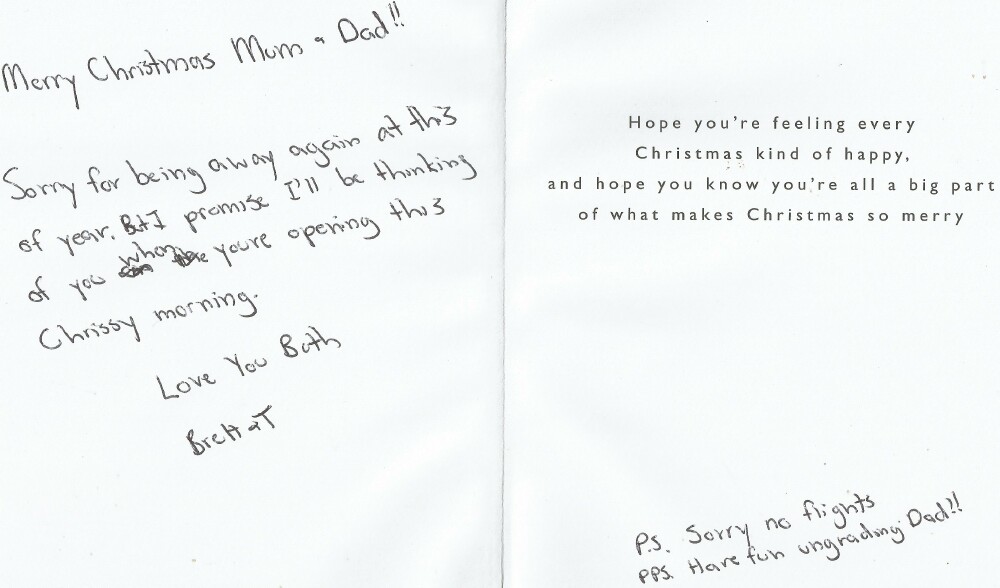 Merry Christmas Mum & Dad!!
Sorry for being away again at this
of year. But I promise I'll be thinking
of you when you're opening this
Chrissy morning.
Love You Both
Brett & T
Hope you're feeling every
Christmas kind of happy,
and hope you know you're all a big part
of what makes Christmas so merry
P.S. Sorry no flights
PPS. Have fun ungrading Dad!!